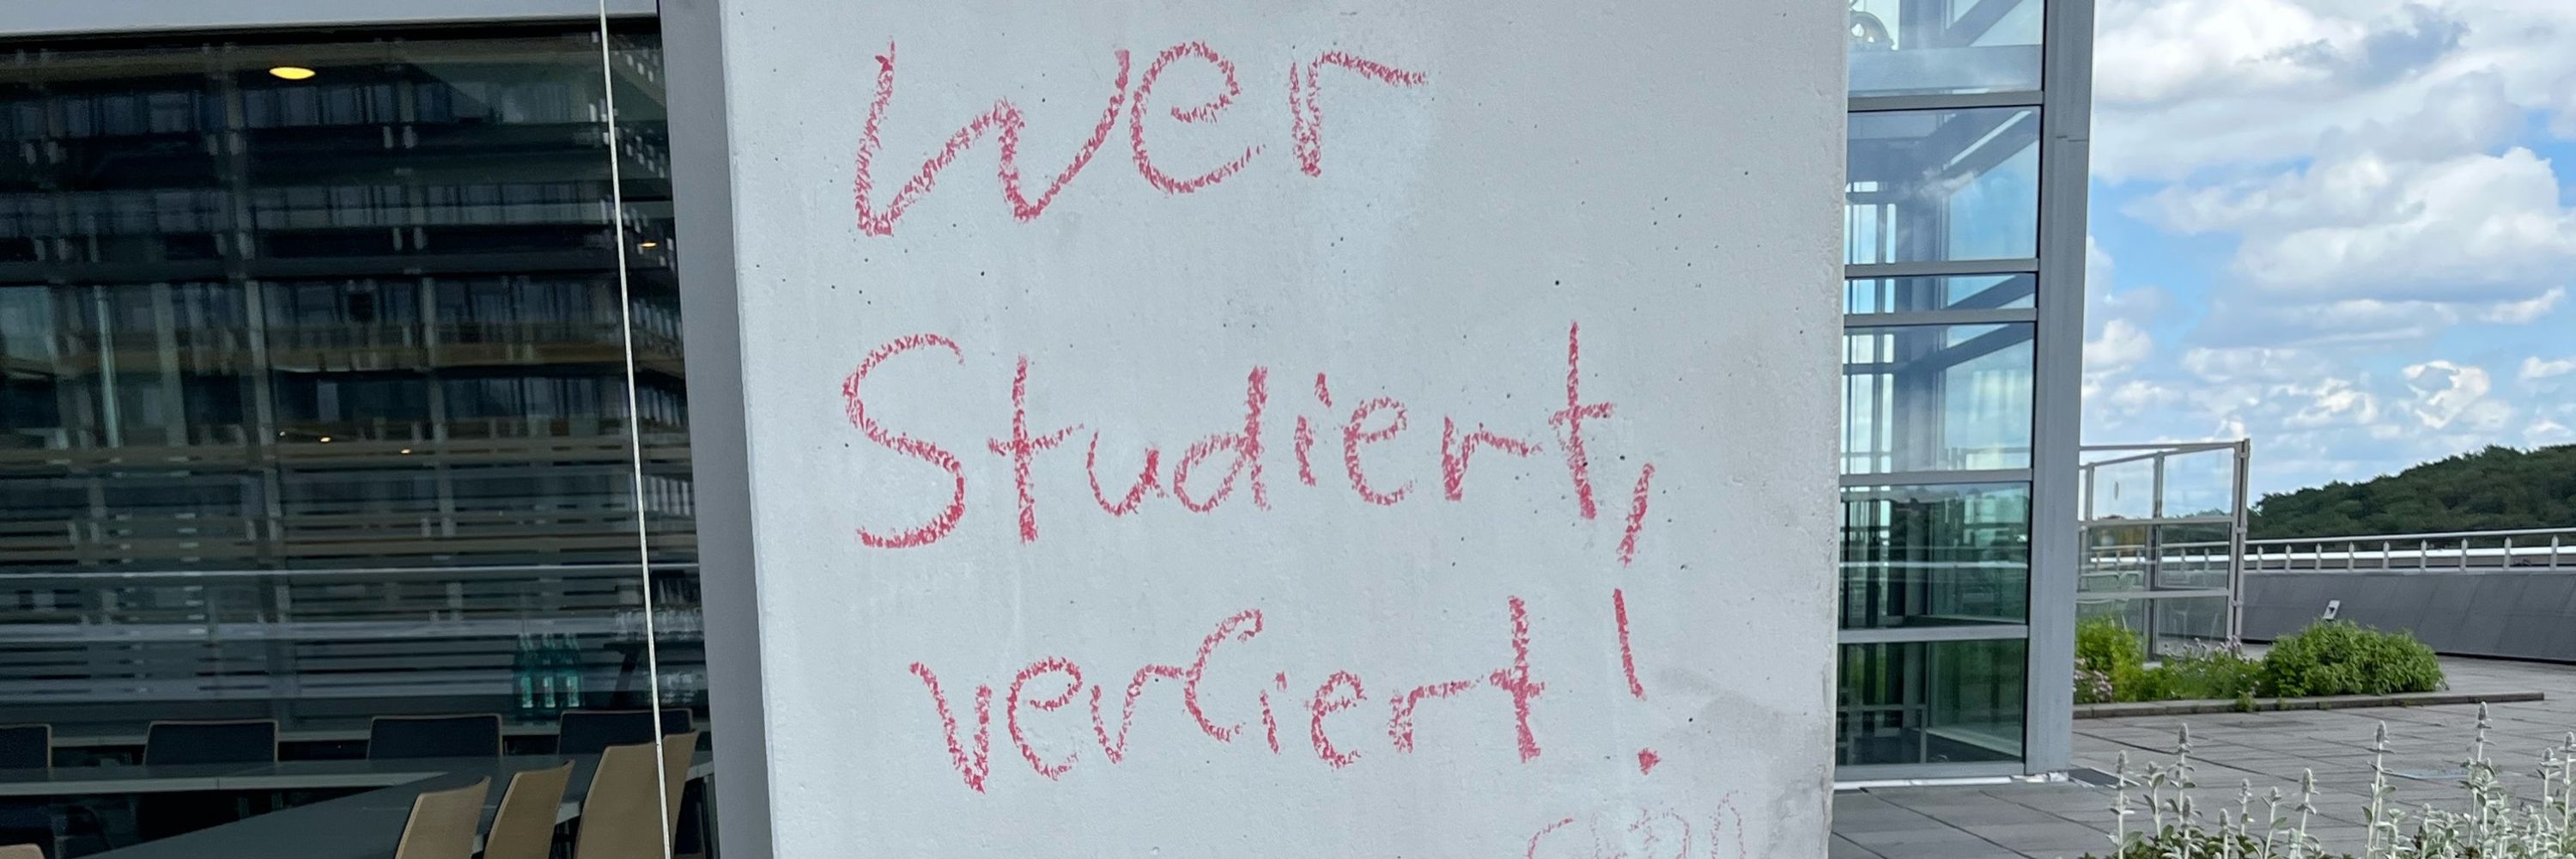 Wer
Studiert,
verliert!